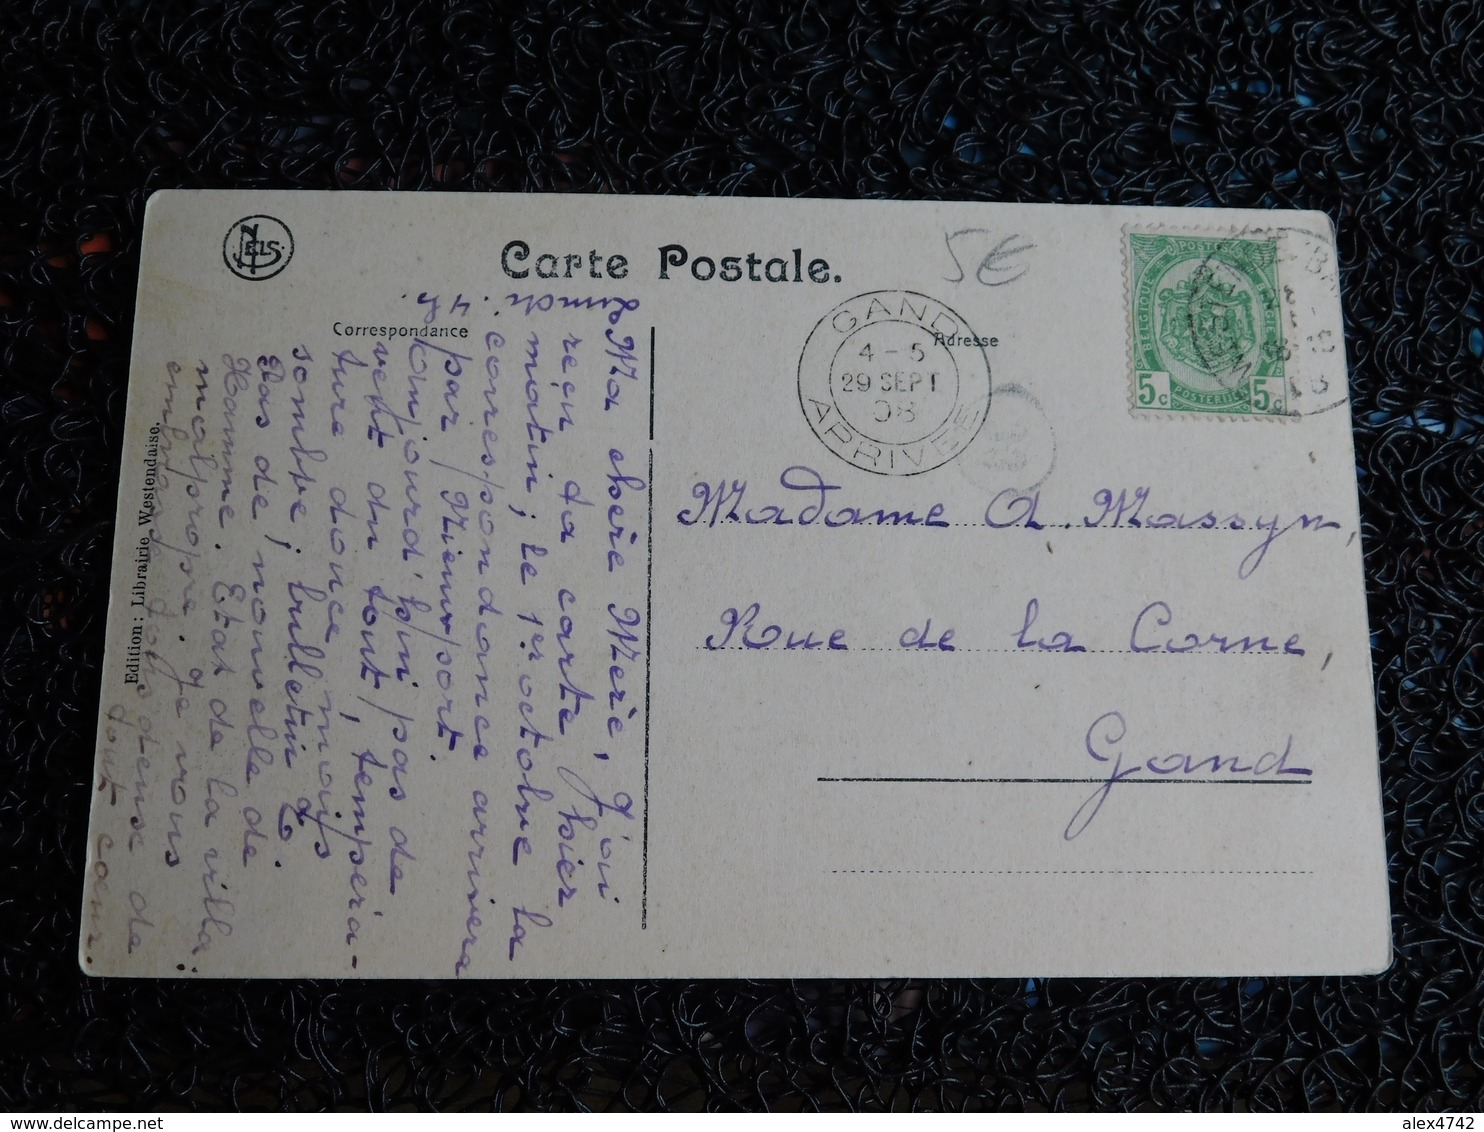 NELS
Carte Postale.
5€
Correspondance
Adresse
GAND
4 - 5
29 SEPT
08
ARRIVÉE
POSTES
BELGIQUE
5c
5c
POSTERIJEN
Madame A. Massyn,
Rue de la Corne,
Gand
Lundi
4 h
Ma chère Mère, j'ai
reçu ta carte hier
matin; le 1er octobre la
correspondance arrivera
par Nieuwport.
Aujourd'hui pas de
vent du tout, tempéra-
ture douce mais
sombre; bulletin
Pas de nouvelle de
Hamme. Etat de la villa:
malpropre. Je vous
embrasse tous deux de
tout cœur.
Edition: Librairie Westendaise.
delcampe.net
alex4742